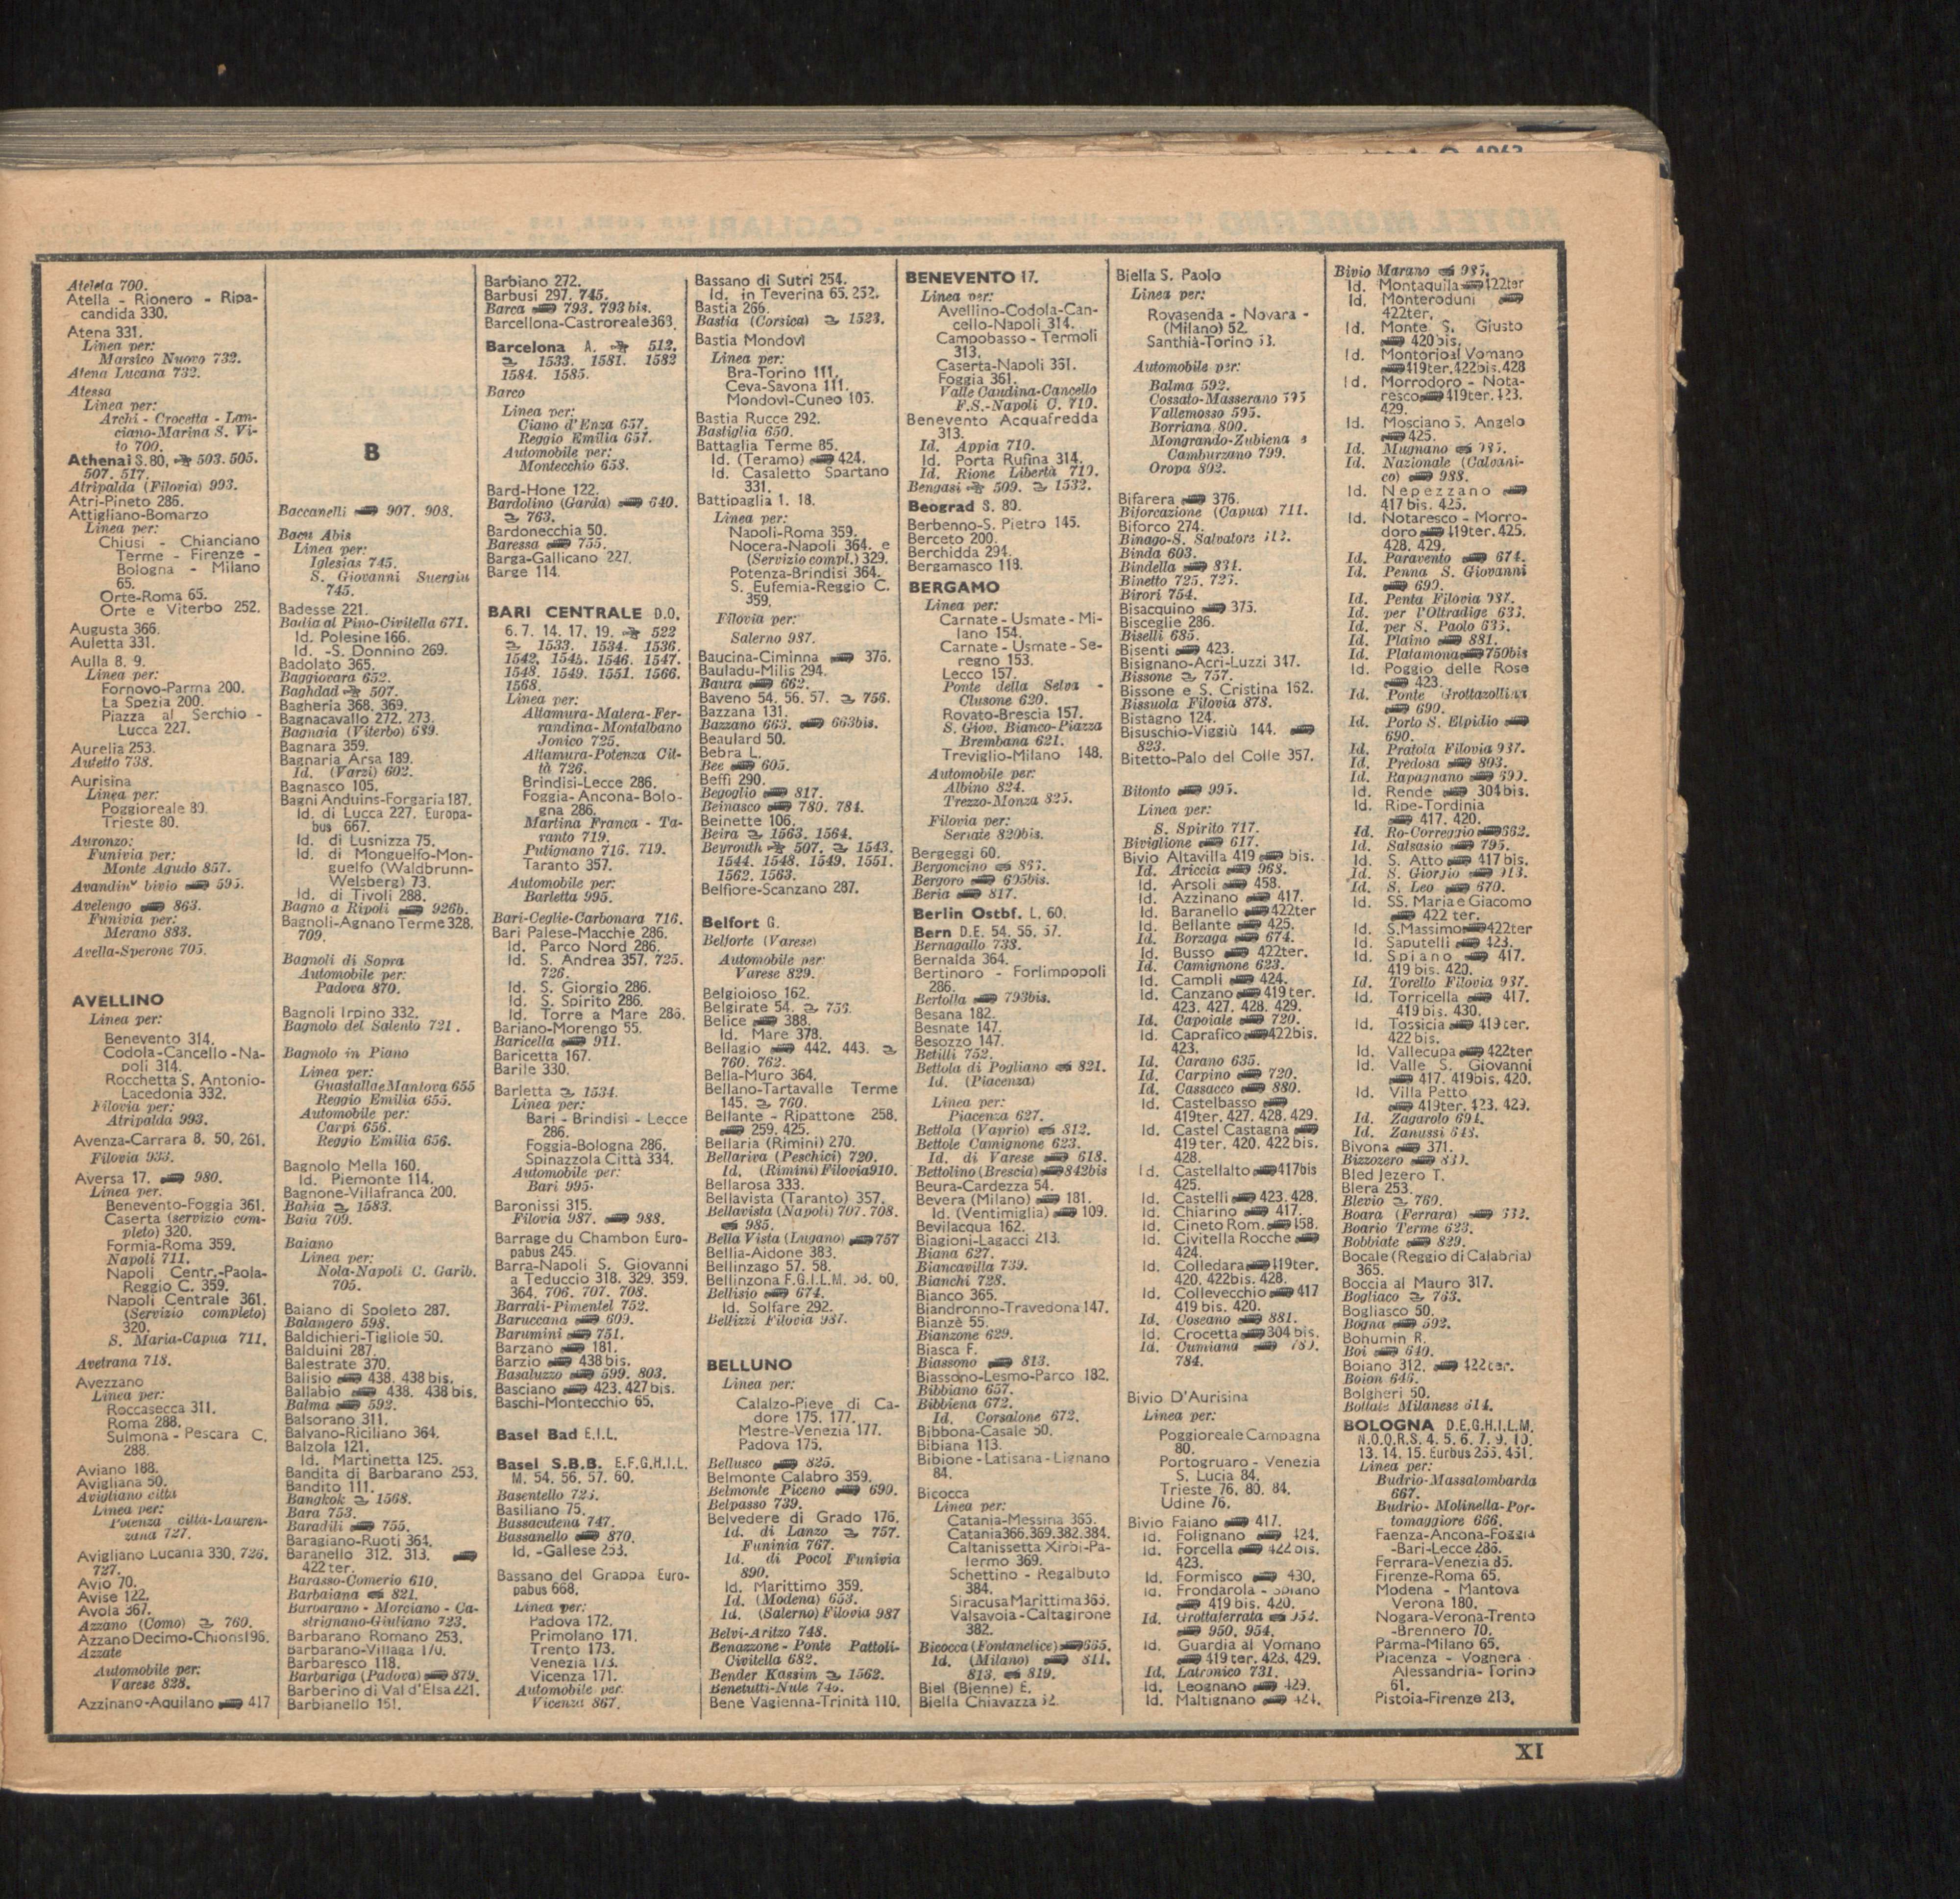 Ateleta 700.
Atella - Rionero - Ripa-
candida 330.
Atena 331.
Linea per:
Marsico Nuovo 732.
Atena Lucana 732.
Atessa
Linea per:
Archi - Crocetta - Lan-
ciano-Marina S. Vi-
to 700.
Athenai S.80. 503. 505.
507. 517.
Atripalda (Filovia) 993.
Atri-Pineto 286.
Attigliano-Bomarzo
Linea per:
Chiusi - Chianciano
Terme - Firenze -
Bologna - Milano
65.
Orte-Roma 65.
Orte e Viterbo 252.
Augusta 366.
Auletta 331.
Aulla 8. 9.
Linea per:
Fornovo-Parma 200.
La Spezia 200.
Piazza al Serchio -
Lucca 227.
Aurelia 253.
Autetto 738.
Aurisina
Linea per:
Poggioreale 80.
Trieste 80.
Auronzo:
Funivia per:
Monte Agudo 857.
bivio 595.
Avelengo 863.
Funivia per:
Merano 883.
Avella-Sperone 705.
AVELLINO
Linea per:
Benevento 314.
Codola-Cancello -Na-
poli 314.
Rocchetta S. Antonio-
Lacedonia 332.
Filovia per:
Atripalda 993.
Avenza-Carrara 8. 50. 261.
Filovia 933.
Aversa 17. 980.
Linea per:
Benevento-Foggia 361.
Caserta (servizio com-
pleto) 320.
Formia-Roma 359.
Napoli 711.
Napoli Centr.-Paola-
Reggio C. 359.
Napoli Centrale 361.
(Servizio completo)
320.
S. Maria-Capua 711.
Avetrana 718.
Avezzano
Linea per:
Roccasecca 311.
Roma 288.
Sulmona - Pescara C.
288.
Aviano 188.
Avigliana 50.
Avigliano città
Linea per:
Potenza città-Lauren-
zana 727.
Avigliano Lucania 330. 726.
727.
Avio 70.
Avise 122.
Avola 367.
Azzano (Como) 760.
Azzano Decimo-Chions196.
Azzate
Automobile per:
Varese 828.
Azzinano-Aquilano 417
B
Baccanelli 907. 908.
Bacu Abis
Linea per:
Iglesias 745.
S. Giovanni Suergiu
745.
Badesse 221.
Badia al Pino-Civitella 671.
Id. Polesine 166.
Id. -S. Donnino 269.
Badolato 365.
Baggiovara 652.
Baghdad 507.
Bagheria 368. 369.
Bagnacavallo 272. 273.
Bagnaia (Viterbo) 689.
Bagnara 359.
Bagnaria Arsa 189.
Id. (Varzi) 602.
Bagnasco 105.
Bagni Anduins-Forgaria 187.
Id. di Lucca 227. Europa-
bus 667.
Id. di Lusnizza 75.
Id. di Monguelfo-Mon-
guelfo (Waldbrunn-
Welsberg) 73.
Id. di Tivoli 288.
Bagno a Ripoli 926b.
Bagnoli-Agnano Terme 328.
709.
Bagnoli di Sopra
Automobile per:
Padova 870.
Bagnoli Irpino 332.
Bagnolo del Salento 721.
Bagnolo in Piano
Linea per:
Guastalla e Mantova 655
Reggio Emilia 655.
Automobile per:
Carpi 656.
Reggio Emilia 656.
Bagnolo Mella 160.
Id. Piemonte 114.
Bagnone-Villafranca 200.
Bahia 1583.
Baia 709.
Baiano
Linea per:
Nola-Napoli C. Garib.
705.
Baiano di Spoleto 287.
Balangero 598.
Baldichieri-Tigliole 50.
Balduini 287.
Balestrate 370.
Balisio 438. 438 bis.
Ballabio 438. 438 bis.
Balma 592.
Balsorano 311.
Balvano-Riciliano 364.
Balzola 121.
Id. Martinetta 125.
Bandita di Barbarano 253.
Bandito 111.
Bangkok 1568.
Bara 753.
Baradili 755.
Baragiano-Ruoti 364.
Baranello 312. 313.
422 ter.
Barasso-Comerio 610.
Barbaiana 821.
Barbarano - Morciano - Ca-
strignano-Giuliano 723.
Barbarano Romano 253.
Barbarano-Villaga 170.
Barbaresco 118.
Barbariga (Padova) 879.
Barberino di Val d'Elsa 221.
Barbianello 151.
Barbiano 272.
Barbusi 297. 745.
Barca 793. 793 bis.
Barcellona-Castroreale363.
Barcelona A. 512.
1533. 1581. 1582
1584. 1585.
Barco
Linea per:
Ciano d'Enza 657.
Reggio Emilia 657.
Automobile per:
Montecchio 658.
Bard-Hone 122.
Bardolino (Garda) 640.
763.
Bardonecchia 50.
Baressa 755.
Barga-Gallicano 227.
Barge 114.
BARI CENTRALE D.O.
6. 7. 14. 17. 19. 522
1533. 1534. 1536.
1542. 1545. 1546. 1547.
1548. 1549. 1551. 1566.
1568.
Linea per:
Altamura-Matera-Fer-
randina-Montalbano
Jonico 725.
Altamura-Potenza Cit-
tà 726.
Brindisi-Lecce 286.
Foggia-Ancona-Bolo-
gna 286.
Martina Franca - Ta-
ranto 719.
Putignano 716. 719.
Taranto 357.
Automobile per:
Barletta 995.
Bari-Ceglie-Carbonara 716.
Bari Palese-Macchie 286.
Id. Parco Nord 286.
Id. S. Andrea 357. 725.
726.
Id. S. Giorgio 286.
Id. S. Spirito 286.
Id. Torre a Mare 286.
Bariano-Morengo 55.
Baricella 911.
Baricetta 167.
Barile 330.
Barletta 1534.
Linea per:
Bari - Brindisi - Lecce
286.
Foggia-Bologna 286.
Spinazzola Città 334.
Automobile per:
Bari 995.
Baronissi 315.
Filovia 987. 988.
Barrage du Chambon Euro-
pabus 245.
Barra-Napoli S. Giovanni
a Teduccio 318. 329. 359.
364. 706. 707. 708.
Barrali-Pimentel 752.
Baruccana 609.
Barumini 751.
Barzano 181.
Barzio 438 bis.
Basaluzzo 599. 803.
Basciano 423. 427 bis.
Baschi-Montecchio 65.
Basel Bad E.I.L.
Basel S.B.B. E.F.G.H.I.L.
M. 54. 56. 57. 60.
Basentello 725.
Basiliano 75.
Bassacutena 747.
Bassanello 870.
Id. -Gallese 253.
Bassano del Grappa Euro-
pabus 668.
Linea per:
Padova 172.
Primolano 171.
Trento 173.
Venezia 173.
Vicenza 171.
Automobile per:
Vicenza 867.
Bassano di Sutri 254.
Id. in Teverina 65. 252.
Bastia 266.
Bastia (Corsica) 1523.
Bastia Mondovì
Linea per:
Bra-Torino 111.
Ceva-Savona 111.
Mondovì-Cuneo 105.
Bastia Rucce 292.
Bastiglia 650.
Battaglia Terme 85.
Id. (Teramo) 424.
Id. Casaletto Spartano
331.
Battipaglia 1. 18.
Linea per:
Napoli-Roma 359.
Nocera-Napoli 364. e
(Servizio compl.) 329.
Potenza-Brindisi 364.
S. Eufemia-Reggio C.
359.
Filovia per:
Salerno 987.
Baucina-Ciminna 376.
Bauladu-Milis 294.
Baura 662.
Baveno 54. 56. 57. 756.
Bazzana 131.
Bazzano 663. 663bis.
Beaulard 50.
Bebra L.
Bee 605.
Beffi 290.
Begoglio 817.
Beinasco 780. 784.
Beinette 106.
Beira 1563. 1564.
Beyrouth 507. 1543.
1544. 1548. 1549. 1551.
1562. 1563.
Belfiore-Scanzano 287.
Belfort G.
Belforte (Varese)
Automobile per:
Varese 829.
Belgioioso 162.
Belgirate 54. 756.
Belice 388.
Id. Mare 378.
Bellagio 442. 443.
760. 762.
Bella-Muro 364.
Bellano-Tartavalle Terme
145. 760.
Bellante - Ripattone 258.
259. 425.
Bellaria (Rimini) 270.
Bellariva (Peschici) 720.
Id. (Rimini) Filovia910.
Bellarosa 333.
Bellavista (Taranto) 357.
Bellavista (Napoli) 707. 708.
985.
Bella Vista (Lugano) 757
Bellia-Aidone 383.
Bellinzago 57. 58.
Bellinzona F.G.I.L.M. 58. 60.
Bellisio 674.
Id. Solfare 292.
Bellizzi Filovia 987.
BELLUNO
Linea per:
Calalzo-Pieve di Ca-
dore 175. 177.
Mestre-Venezia 177.
Padova 175.
Bellusco 825.
Belmonte Calabro 359.
Belmonte Piceno 690.
Belpasso 739.
Belvedere di Grado 176.
Id. di Lanzo 757.
Funinia 767.
Id. di Pocol Funivia
890.
Id. Marittimo 359.
Id. (Modena) 653.
Id. (Salerno) Filovia 987
Belvi-Aritzo 748.
Benazzone - Ponte Pattoli-
Civitella 682.
Bender Kassim 1562.
Benetutti-Nule 746.
Bene Vagienna-Trinità 110.
BENEVENTO 17.
Linea per:
Avellino-Codola-Can-
cello-Napoli 314.
Campobasso - Termoli
313.
Caserta-Napoli 361.
Foggia 361.
Valle Caudina-Cancello
F.S.-Napoli C. 710.
Benevento Acquafredda
313.
Id. Appia 710.
Id. Porta Rufina 314.
Id. Rione Libertà 710.
Bengasi 509. 1532.
Beograd S. 80.
Berbenno-S. Pietro 145.
Berceto 200.
Berchidda 294.
Bergamasco 118.
BERGAMO
Linea per:
Carnate - Usmate - Mi-
lano 154.
Carnate - Usmate - Se-
regno 153.
Lecco 157.
Ponte della Selva -
Clusone 620.
Rovato-Brescia 157.
S. Giov. Bianco-Piazza
Brembana 621.
Treviglio-Milano 148.
Automobile per:
Albino 824.
Trezzo-Monza 825.
Filovia per:
Seriate 820bis.
Bergeggi 60.
Bergoncino
Bergoro 605bis.
Beria 817.
Berlin Ostbf. L. 60.
Bern D.E. 54. 56. 57.
Bernagallo 738.
Bernalda 364.
Bertinoro - Forlimpopoli
286.
Bertolla 793bis.
Besana 182.
Besnate 147.
Besozzo 147.
Betilli 752.
Bettola di Pogliano 821.
Id. (Piacenza)
Linea per:
Piacenza 627.
Bettola (Vaprio) 812.
Bettole Camignone 623.
Id. di Varese 618.
Bettolino (Brescia) 842bis
Beura-Cardezza 54.
Bevera (Milano) 181.
Id. (Ventimiglia) 109.
Bevilacqua 162.
Biagioni-Lagacci 213.
Biana 627.
Biancavilla 739.
Bianchi 728.
Bianco 365.
Biandronno-Travedona 147.
Bianzè 55.
Bianzone 629.
Biasca F.
Biassono 813.
Biassono-Lesmo-Parco 182.
Bibbiano 657.
Bibbiena 672.
Id. Corsalone 672.
Bibbona-Casale 50.
Bibiana 113.
Bibione - Latisana - Lignano
84.
Bicocca
Linea per:
Catania-Messina 365.
Catania366.369.382.384.
Caltanissetta Xirbi-Pa-
lermo 369.
Schettino - Regalbuto
384.
Siracusa Marittima 365.
Valsavoia-Caltagirone
382.
Bicocca (Fontanelice) 665.
Id. (Milano) 811.
813. 819.
Biel (Bienne) E.
Biella Chiavazza 52.
Biella S. Paolo
Linea per:
Rovasenda - Novara -
(Milano) 52.
Santhià-Torino 53.
Automobile per:
Balma 592.
Cossato-Masserano 595
Vallemosso 595.
Borriana 800.
Mongrando-Zubiena e
Camburzano 799.
Oropa 802.
Bifarera 376.
Biforcazione (Capua) 711.
Biforco 274.
Binago-S. Salvatore 612.
Binda 603.
Bindella 831.
Binetto 725. 726.
Birori 754.
Bisacquino 376.
Bisceglie 286.
Biselli 685.
Bisenti 423.
Bisignano-Acri-Luzzi 347.
Bissone 757.
Bissone e S. Cristina 162.
Bissuola Filovia 878.
Bistagno 124.
Bisuschio-Viggiù 144.
823.
Bitetto-Palo del Colle 357.
Bitonto 995.
Linea per:
S. Spirito 717.
Biviglione 617.
Bivio Altavilla 419 bis.
Id. Ariccia 968.
Id. Arsoli 458.
Id. Azzinano 417.
Id. Baranello 422ter
Id. Bellante 425.
Id. Borzaga 674.
Id. Busso 422ter.
Id. Camignone 623.
Id. Campli 424.
Id. Canzano 419 ter.
423. 427. 428. 429.
Id. Capoiale 720.
Id. Caprafico 422bis.
423.
Id. Carano 635.
Id. Carpino 720.
Id. Cassacco 880.
Id. Castelbasso
419ter. 427. 428. 429.
Id. Castel Castagna
419 ter. 420. 422 bis.
428.
Id. Castellalto 417bis
425.
Id. Castelli 423. 428.
Id. Chiarino 417.
Id. Cineto Rom. 458.
Id. Civitella Rocche
424.
Id. Colledara 419ter.
420. 422bis. 428.
Id. Collevecchio 417
419 bis. 420.
Id. Coseano 881.
Id. Crocetta 304 bis.
Id. Cumiana 783.
784.
Bivio D'Aurisina
Linea per:
Poggioreale Campagna
80.
Portogruaro - Venezia
S. Lucia 84.
Trieste 76. 80. 84.
Udine 76.
Bivio Faiano 417.
Id. Folignano 424.
Id. Forcella 422 bis.
423.
Id. Formisco 430.
Id. Frondarola - Spiano
419 bis. 420.
Id. Grottaferrata 952.
950. 954.
Id. Guardia al Vomano
419 ter. 428. 429.
Id. Latronico 731.
Id. Leognano 429.
Id. Maltignano 424.
Bivio Marano 985.
Id. Montaquila 422ter
Id. Monteroduni
422ter.
Id. Monte S. Giusto
420 bis.
Id. Montorio al Vomano
419ter. 422bis. 428
Id. Morrodoro - Nota-
resco 419ter. 423.
429.
Id. Mosciano S. Angelo
425.
Id. Mugnano 985.
Id. Nazionale (Galvani-
co) 988.
Id. Nepezzano
417 bis. 425.
Id. Notaresco - Morro-
doro 419ter. 425.
428. 429.
Id. Paravento 674.
Id. Penna S. Giovanni
690.
Id. Penta Filovia 987.
Id. per l'Oltradige 635.
Id. per S. Paolo 635.
Id. Plaino 881.
Id. Platamona 750bis
Id. Poggio delle Rose
423.
Id. Ponte Grottazzolina
690.
Id. Porto S. Elpidio
690.
Id. Pratola Filovia 937.
Id. Predosa 803.
Id. Rapagnano 690.
Id. Rende 304bis.
Id. Ripe-Tordinia
417. 420.
Id. Ro-Correggio 662.
Id. Salsasio 795.
Id. S. Atto 417 bis.
Id. S. Giorgio 913.
Id. S. Leo 670.
Id. SS. Maria e Giacomo
422 ter.
Id. S.Massimo 422ter
Id. Saputelli 423.
Id. Spiano 417.
419 bis. 420.
Id. Torello Filovia 987.
Id. Torricella 417.
419 bis. 430.
Id. Tossicia 419 ter.
422 bis.
Id. Vallecupa 422ter
Id. Valle S. Giovanni
417. 419bis. 420.
Id. Villa Petto
419ter. 423. 429.
Id. Zagarolo 694.
Id. Zanussi 648.
Bivona 371.
Bizzozero 830.
Bled Jezero T.
Blera 253.
Blevio 760.
Boara (Ferrara) 662.
Boario Terme 623.
Bobbiate 829.
Bocale (Reggio di Calabria)
365.
Boccia al Mauro 317.
Bogliaco 763.
Bogliasco 50.
Bogna 592.
Bohumin R.
Boi 640.
Boiano 312. 422ter.
Boion 646.
Bolgheri 50.
Bollate Milanese 614.
BOLOGNA D.E.G.H.I.L.M.
N.O.Q.R.S. 4. 5. 6. 7. 9. 10.
13. 14. 15. Eurbus 255. 451.
Linea per:
Budrio-Massalombarda
667.
Budrio- Molinella-Por-
tomaggiore 666.
Faenza-Ancona-Foggia
-Bari-Lecce 286.
Ferrara-Venezia 85.
Firenze-Roma 65.
Modena - Mantova
Verona 180.
Nogara-Verona-Trento
-Brennero 70.
Parma-Milano 65.
Piacenza - Voghera
Alessandria- Torino
61.
Pistoia-Firenze 213.
XI